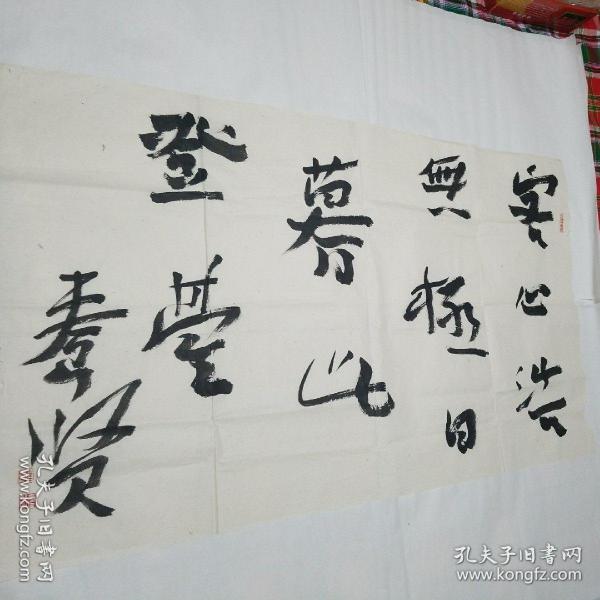 客心浩
無極日
暮此
登臺
贤
孔夫子旧书网
www.kongfz.com
孔夫子旧书网
www.kongfz.com